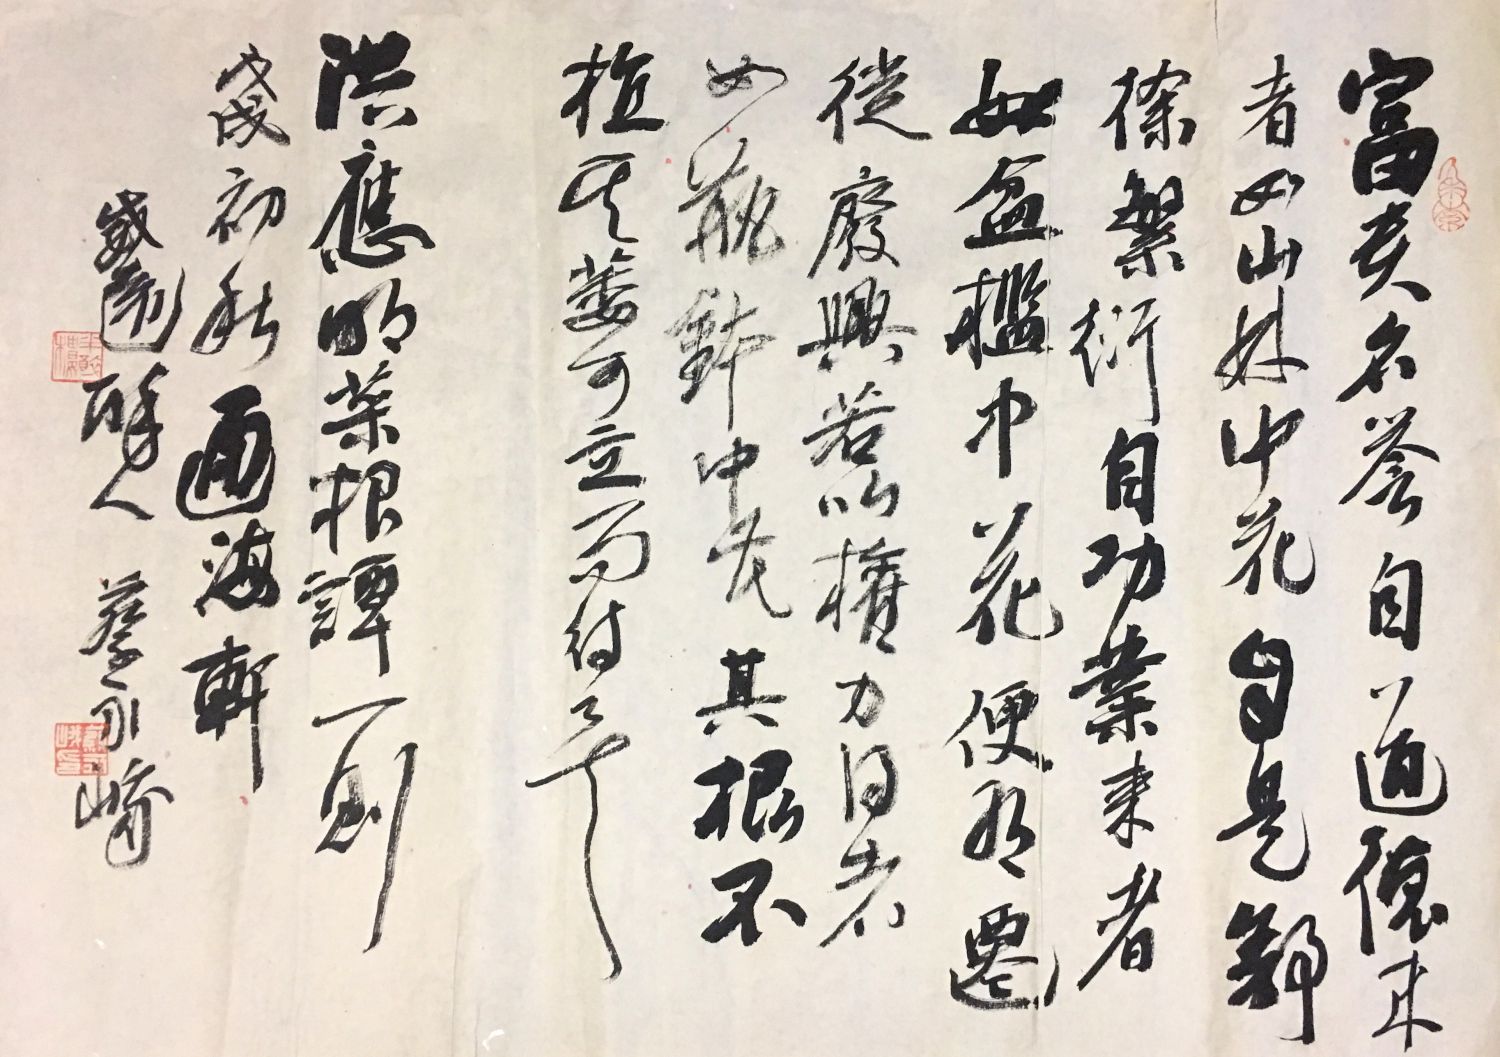 富貴名譽自道德來
者如山林中花自是舒
徐繁衍自功業來者
如盆檻中花便有遷
徙廢興若以權力得者
如瓶鉢中花其根不
植其萎可立而待矣
洪應明菜根譚一則
戊戌初秋通海軒
蔡永